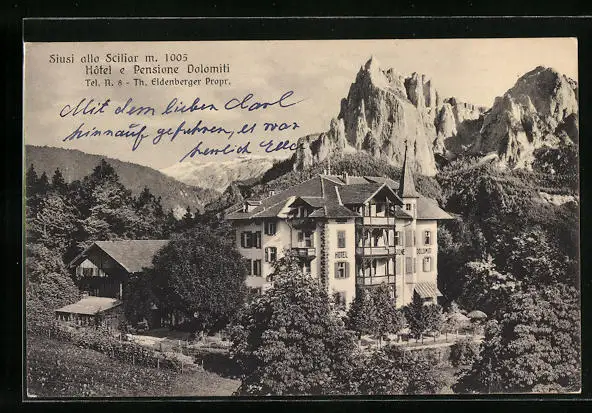 Siusi allo Sciliar m. 1005
Hôtel e Pensione Dolomiti
Tel. N. 8 - Th. Eldenberger Propr.
Mit dem lieben Carl
hinauf gefahren, es war
herrlich
HOTEL DOLOMITI